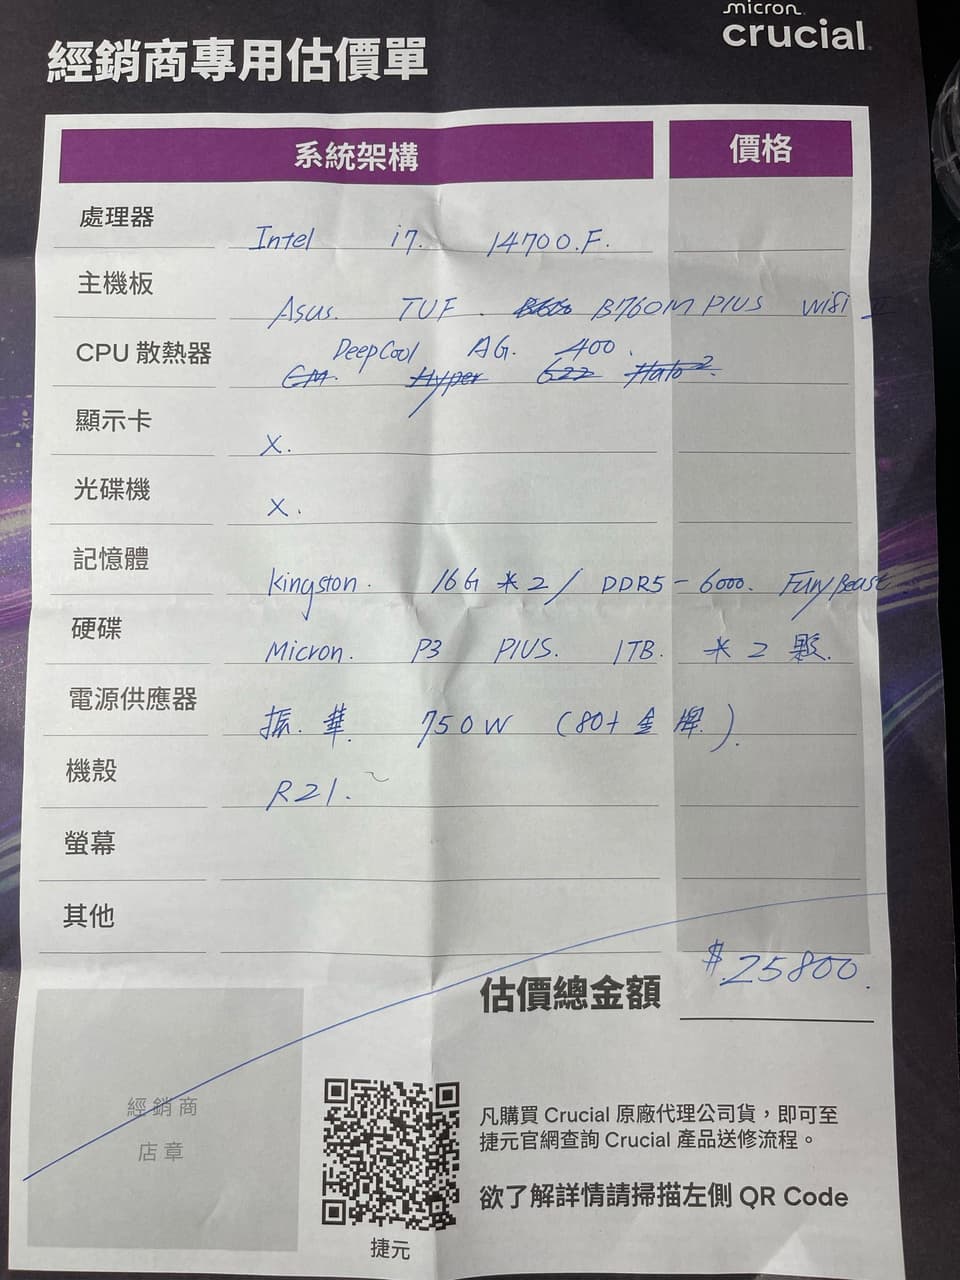 micron
crucial
經銷商專用估價單
系統架構 價格
處理器 Intel i7. 14700.F.
主機板 Asus. TUF. B760M PlUS wifi II
CPU 散熱器 DeepCool AG. 400.
CM. Hyper 622 Halo 2.
顯示卡 X.
光碟機 X.
記憶體 Kingston. 16G *2/ DDR5-6000. Fury Beast
硬碟 Micron. P3 PlUS. 1TB. * 2 顆.
電源供應器 振華 750W (80+金牌.).
機殼 R21.
螢幕
其他
估價總金額 $25800.
經銷商
店章
凡購買 Crucial 原廠代理公司貨，即可至
捷元官網查詢 Crucial 產品送修流程。
欲了解詳情請掃描左側 QR Code
捷元